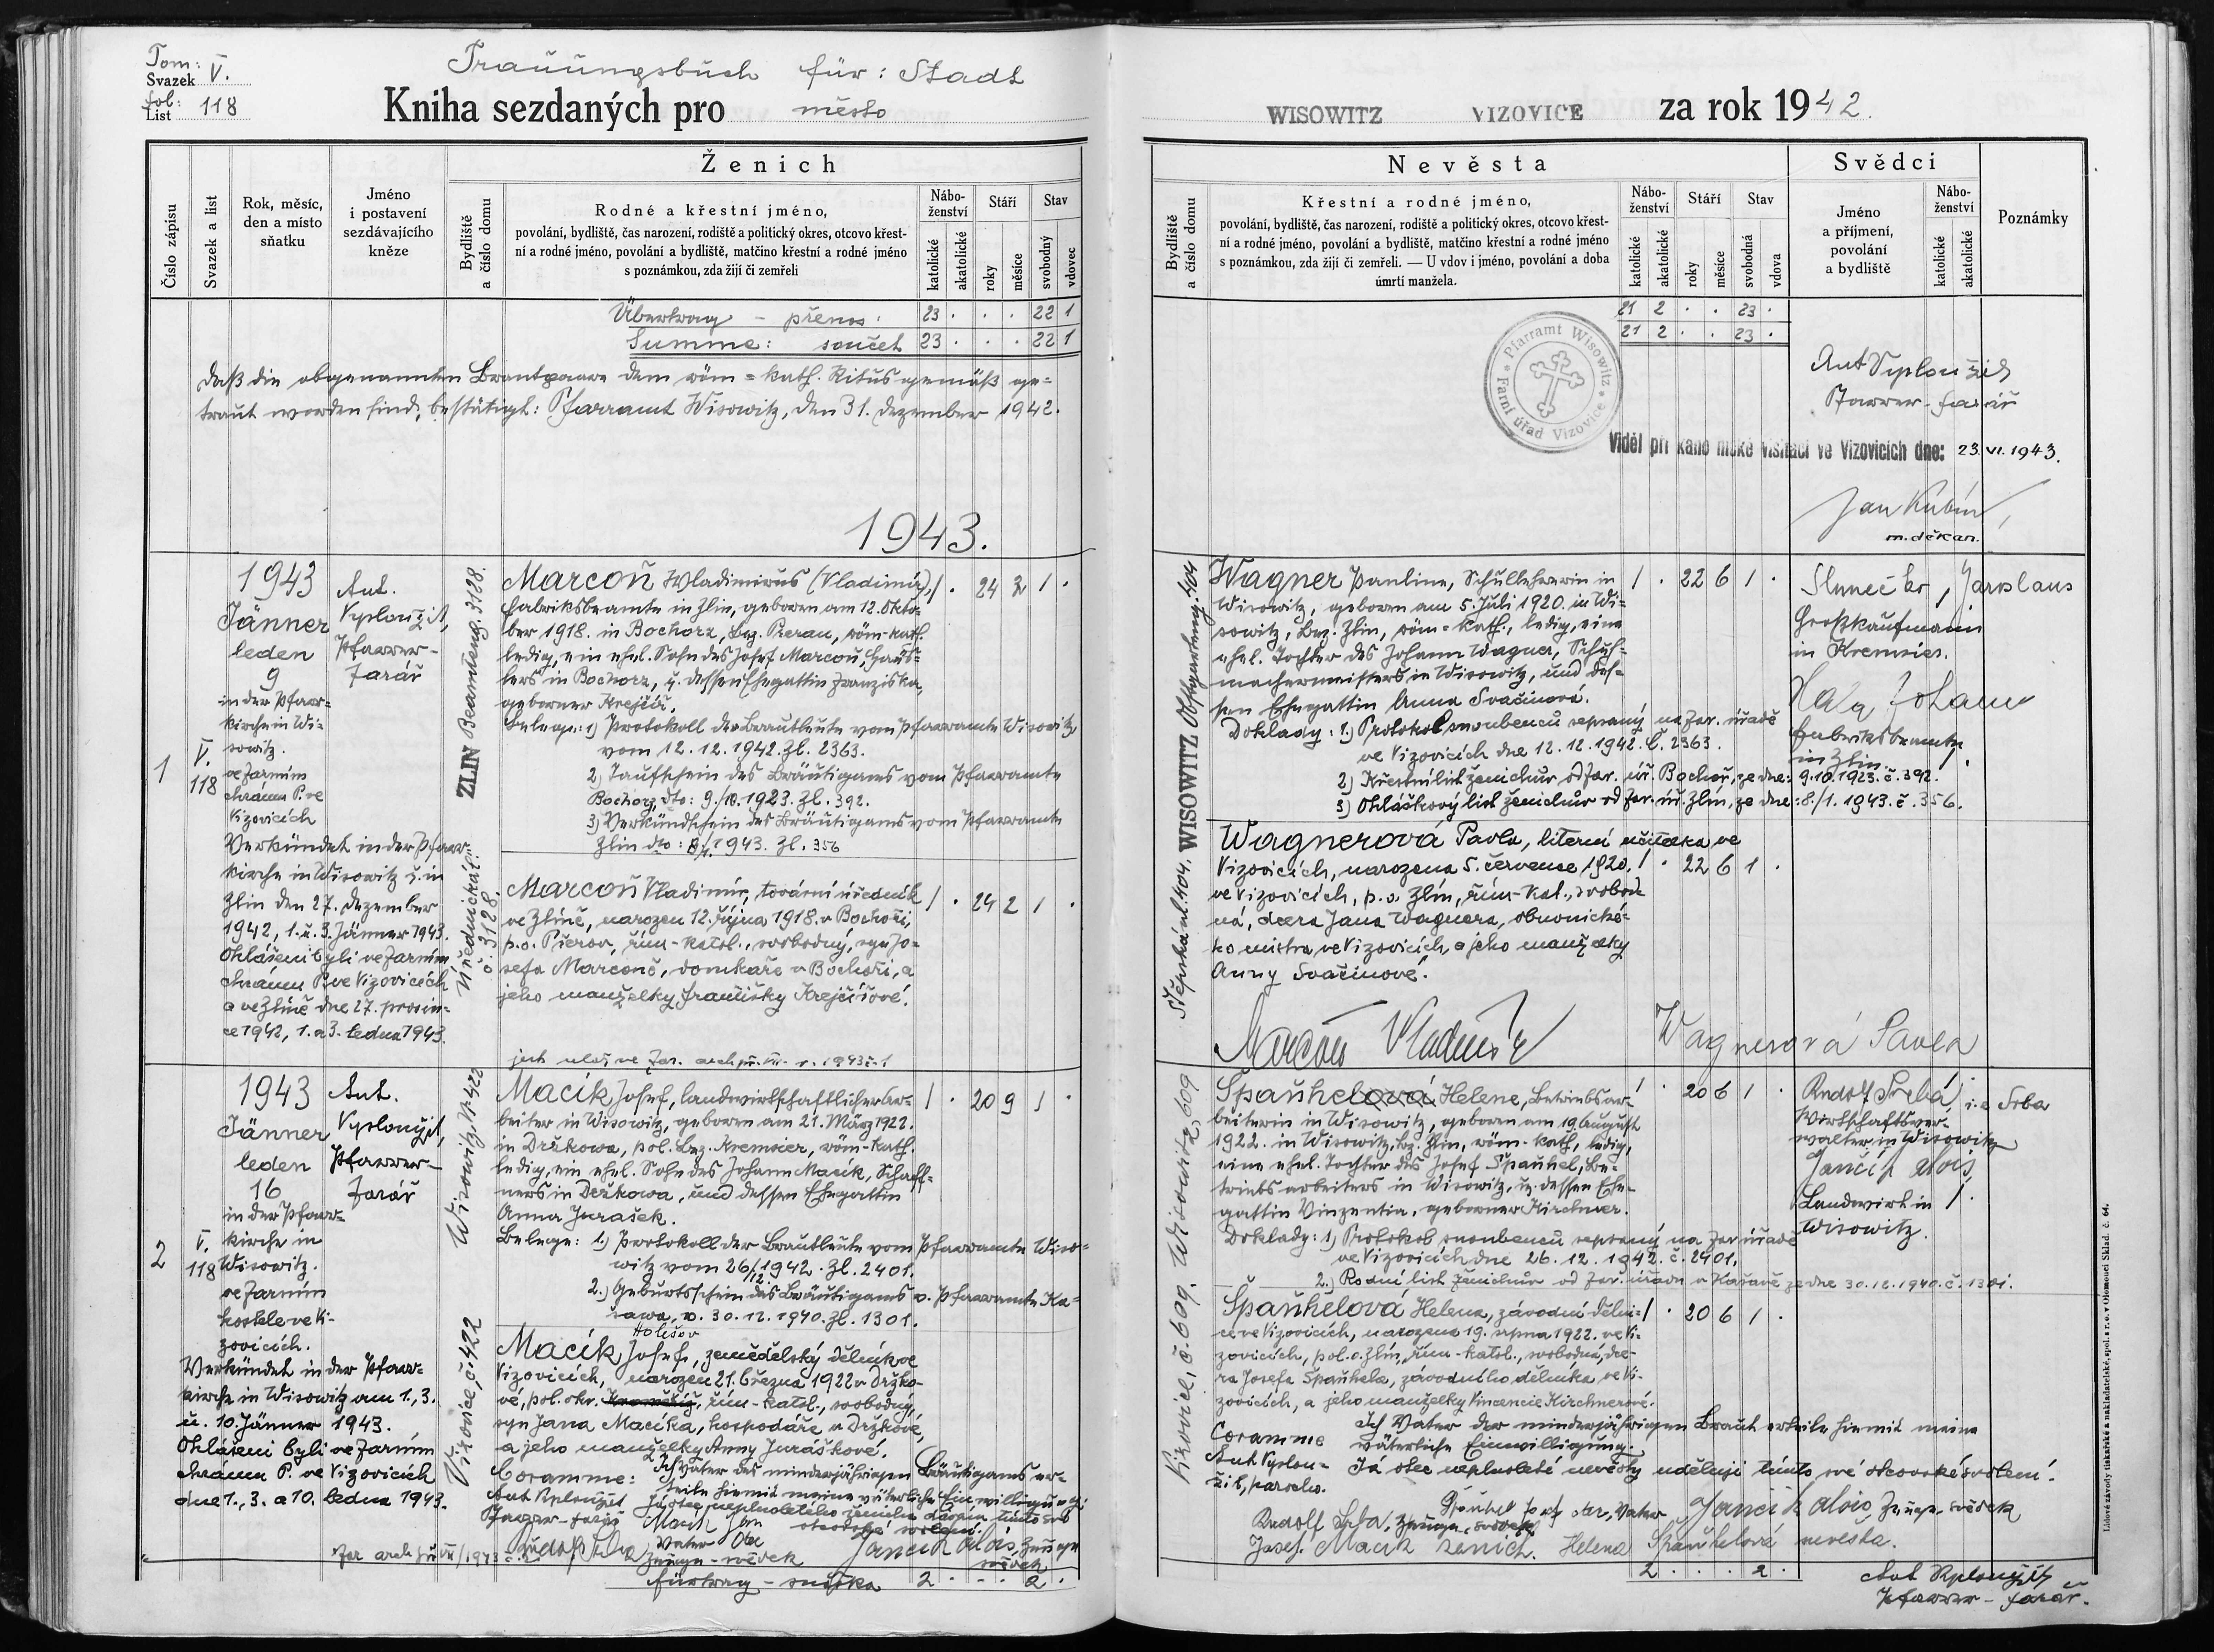 Tom:
Svazek V.
fol:
List 118
Trauungsbuch für: Stadt
Kniha sezdaných pro město
Číslo zápisu
Svazek a list
Rok, měsíc,
den a místo
sňatku
Jméno
i postavení
sezdávajícího
kněze
Ženich
Bydliště
a číslo domu
Rodné a křestní jméno,
povolání, bydliště, čas narození, rodiště a politický okres, otcovo křest-
ní a rodné jméno, povolání a bydliště, matčino křestní a rodné jméno
s poznámkou, zda žijí či zemřeli
Nábo-
ženství
katolické
akatolické
Stáří
roky
měsíce
Stav
svobodný
vdovec
Übertrag - přenos: 23 . . . 22 1
Summe: součet 23 . . . 22 1
Daß die obgenannten Brautpaare dem röm=kath. Ritus gemäß ge=
traut worden sind, bestätigt: Pfarramt Wisowitz, den 31. Dezember 1942.
1943.
1
V.
118
1943
Jänner
leden
9
in der Pfarr=
kirche in Wi=
sowitz.
ve farním
chrámu P. ve
Vizovicích
Verkündet in der Pfarr
kirche in Wisowitz u. in
Zlin den 27. Dezember
1942, 1. u. 3. Jänner 1943.
Ohlášeni byli ve farním
chrámu P. ve Vizovicích
a ve Zlíně dne 27. prosin=
ce 1942, 1. a 3. ledna 1943.
Ant.
Vyplouzil,
Pfarrer-
farář
ZLIN Beamteng. 3128.
Úřednická ul.
č. 3128.
Marcoň Wladimirus (Vladimír), 1 . 24 2 1 .
Fabriksbeamte in Zlin, geboren am 12. Okto=
ber 1918. in Bochorz, Bez. Prerau, röm-kath.
ledig, ein ehel. Sohn des Josef Marcoň, Häus=
lers in Bochorz, u. dessen Ehegattin Franziska,
geborner Krejčíř.
Belege: 1) Protokoll der Brautleute vom Pfarramte Wisowitz
vom 12. 12. 1942. Zl. 2363.
2) Taufschein des Bräutigams vom Pfarramte
Bochorz, dto: 9./10. 1923. Zl. 392.
3) Verkündschein des Bräutigams vom Pfarramte
Zlin dto: 8/1. 1943. Zl. 356
Marcoň Vladimír, tovární úředník 1 . 24 2 1 .
ve Zlíně, narozen 12. října 1918. v Bochoři,
p.o. Přerov, řím-katol., svobodný, syn Jo=
sefa Marconě, domkaře v Bochoři, a
jeho manželky Františky Krejčířové.
2
V.
118
1943
Jänner
leden
16
in der Pfarr=
kirche in
Wisowitz.
ve farním
kostele ve Vi-
zovicích.
Verkündet in der Pfarr=
kirche in Wisowitz am 1., 3.
u. 10. Jänner 1943.
Ohlášeni byli ve farním
chrámu P. ve Vizovicích
dne 1., 3. a 10. ledna 1943.
Ant.
Vyplouzil,
Pfarrer-
farář
Wisowitz, Nr 422
Vizovice, č. 422
Macík Josef, landwirtschaftlicher Ar= 1 . 20 9 1 .
beiter in Wisowitz, geboren am 21. März 1922.
in Držkowa, pol. Bez. Kremsier, röm-kath.
ledig, ein ehel. Sohn des Johann Macík, Schaff=
ners in Držkowa, und dessen Ehegattin
Anna Jurašek.
Belege: 1.) Protokoll der Brautleute vom Pfarramte Wiso=
witz vom 26/12. 1942. Zl. 2401.
2.) Geburtsschein des Bräutigams v. Pfarramte Ka=
šawa, v. 30. 12. 1940. Zl. 1301.
Holešov
Macík Josef, zemědělský dělník ve
Vizovicích, narozen 21. března 1922 v Držko-
vé, pol. okr. Kroměříž, řím-katol., svobodný,
syn Jana Macíka, hospodáře v Držkové,
a jeho manželky Anny Juráškové.
Coramme: Ich Vater des minderjährigen Bräutigams er=
teile hiemit meine väterliche Einwilligung
Já otec neplnoletého ženicha dávám tímto své
otcovské svolení.
Macík Jan
Vater Otec
Zeuge - svědek
Jančík Alois, Zeuge
svědek
Fürtrag - snáška 2 . . . 2 .
WISOWITZ VIZOVICE za rok 1942.
Nevěsta
Bydliště
a číslo domu
Křestní a rodné jméno,
povolání, bydliště, čas narození, rodiště a politický okres, otcovo křest-
ní a rodné jméno, povolání a bydliště, matčino křestní a rodné jméno
s poznámkou, zda žijí či zemřeli. — U vdov i jméno, povolání a doba
úmrtí manžela.
Nábo-
ženství
katolické
akatolické
Stáří
roky
měsíce
Stav
svobodná
vdova
Svědci
Jméno
a příjmení,
povolání
a bydliště
Nábo-
ženství
katolické
akatolické
Poznámky
21 2 . . 23 .
21 2 . . 23 .
Pfarramt Wisowitz
Farní úřad Vizovice
Ant Vyplouzil
Pfarrer - farář
Viděl při kanonické visitaci ve Vizovicích dne: 23. VI. 1943.
Jan Kubín
m. děkan.
WISOWITZ Obstgartenг. 404
Štěpská ul. 404.
Wagner Pauline, Schullehrerin in 1 . 22 6 1 .
Wisowitz, geboren am 5. Juli 1920. in Wi=
sowitz, Bez. Zlin, röm=kath., ledig, eine
ehel. Tochter des Johann Wagner, Schuh=
machermeisters in Wisowitz, und des=
sen Ehegattin Anna Svačinová.
Doklady: 1.) Protokol snoubenců sepsaný na far. úřadě
ve Vizovicích dne 12. 12. 1942. č. 2363.
2) Křestní list ženichův od far. úř. Bochoř, ze dne: 9.10.1923. č. 392.
3) Ohláškový list ženichův od far. úř. Zlín, ze dne: 8./1. 1943. č. 356.
Slunečko, Jaroslaus
Großkaufmann
in Kremsier.
Fabriksbeamte
in Zlin.
Wagnerová Pavla, literní učitelka ve
Vizovicích, narozena 5. července 1920. 1 . 22 6 1 .
ve Vizovicích, p.o. Zlín, řím-kat., svobod
ná, dcera Jana Wagnera, obuvnické-
ho mistra ve Vizovicích, a jeho manželky
Anny Svačinové.
Marcoň Vladimír Wagnerová Pavla
Wisowitz, 609
Vizovice, č. 609.
Španhelová Helene, Betriebsar= 1 . 20 6 1 .
beiterin in Wisowitz, geboren am 19. August
1922. in Wisowitz, Bez. Zlin, röm-kath., ledig,
eine ehel. Tochter des Josef Španhel, Be=
triebsarbeiters in Wisowitz, u. dessen Ehe-
gattin Vinzentia, geborner Kirchner.
Doklady: 1) Protokol snoubenců sepsaný na far. úřadě
ve Vizovicích dne 26. 12. 1942. č. 2401.
2.) Rodný list ženichův od far. úřadu v Kašavě ze dne 30.12.1940. č. 1301.
Rudolf Srba i.e Srba
Wirtschaftsver-
walter in Wisowitz
Jančík Alois
Landwirt in
Wisowitz.
Španhelová Helena, závodní dělni= 1 . 20 6 1 .
ce ve Vizovicích, narozena 19. srpna 1922. ve Vi-
zovicích, pol. o. Zlín, řím-katol., svobodná, dce-
ra Josefa Španhela, závodního dělníka ve Vi-
zovicích, a jeho manželky Vincencie Kirchnerové.
Ich Vater der minderjährigen Braut erteile hiemit meine
väterliche Einwilligung.
Coramme
Ant Vyplou=
žil, parocho.
Já otec neplnoleté nevěsty uděluji tímto své otcovské svolení.
Španhel Josef otec, Vater Jančík Alois, Zeuge, svědek
Rudolf Srba, Zeuge, svědek
Josef Macík ženich. Helena Španhelová nevěsta.
2 . . . 2 .
Ant Vyplouzil
Pfarrer - farář.
Lidové závody tiskařské a nakladatelské, spol. s r. o. v Olomouci Sklad. č. 64.